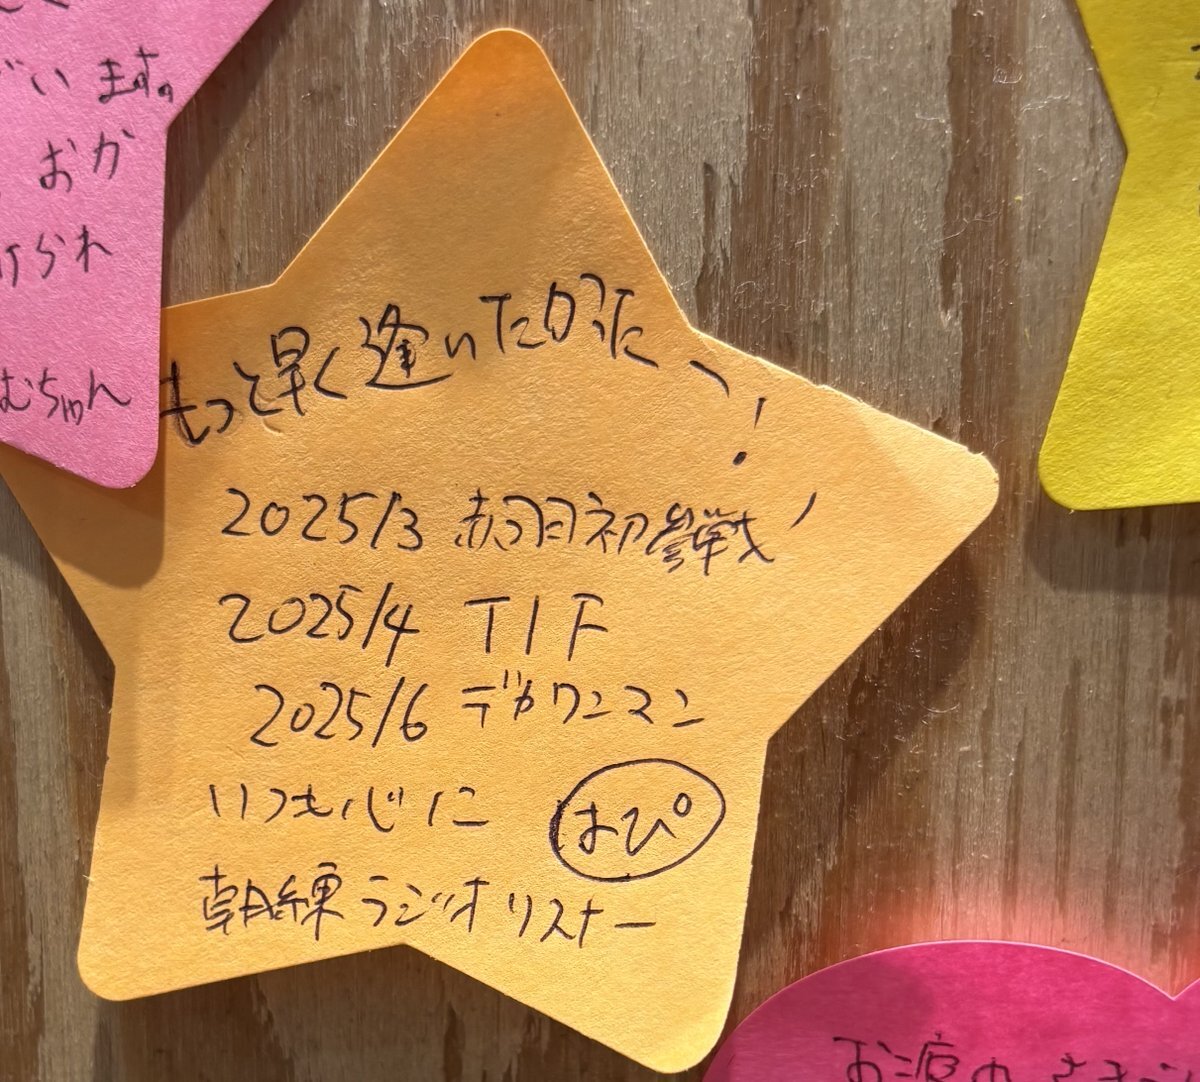 ざいます。
おか
けられ
むちゃん
もっと早く逢いたかった、!
2025/3 赤羽初参戦
2025/4 TIF
2025/6 デカワンマン
いつも心に はぴ
朝練ラジオリスナー